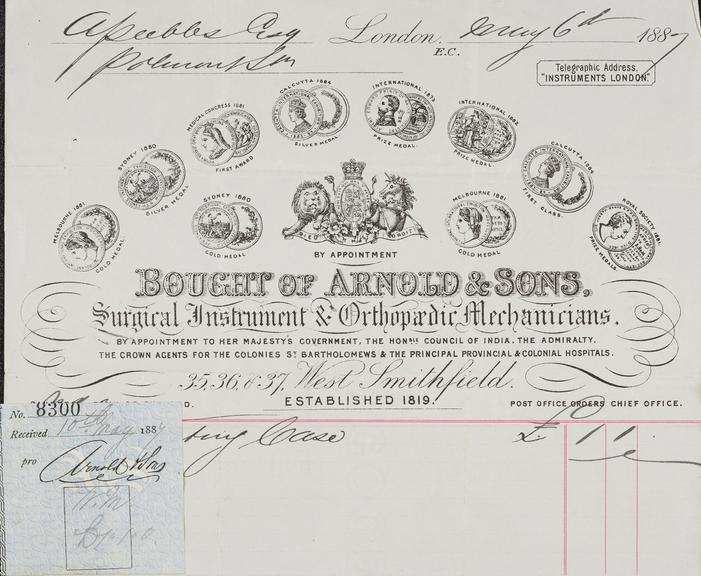 A Peebles Esq London, May 6th 1887
E.C.
Polmont Stn
Telegraphic Address.
"INSTRUMENTS LONDON."
MELBOURNE 1881 GOLD MEDAL
SYDNEY 1880 SILVER MEDAL
MEDICAL CONGRESS 1881 FIRST AWARD
CALCUTTA 1884 SILVER MEDAL
INTERNATIONAL 1873 PRIZE MEDAL
INTERNATIONAL 1862 PRIZE MEDAL
CALCUTTA 1884 FIRST CLASS
ROYAL SOCIETY 1881 PRIZE MEDALS
SYDNEY 1880 GOLD MEDAL
MELBOURNE 1881 GOLD MEDAL
BY APPOINTMENT
BOUGHT OF ARNOLD & SONS,
Surgical Instrument & Orthopædic Mechanicians.
BY APPOINTMENT TO HER MAJESTY'S GOVERNMENT, THE HONBLE COUNCIL OF INDIA, THE ADMIRALTY,
THE CROWN AGENTS FOR THE COLONIES ST BARTHOLOMEWS & THE PRINCIPAL PROVINCIAL & COLONIAL HOSPITALS.
35, 36, & 37, West Smithfield.
ESTABLISHED 1819.
POST OFFICE ORDERS CHIEF OFFICE.
Case £ 1 1
No. 8300
Received 10th May 188
pro
Arnold & Sons